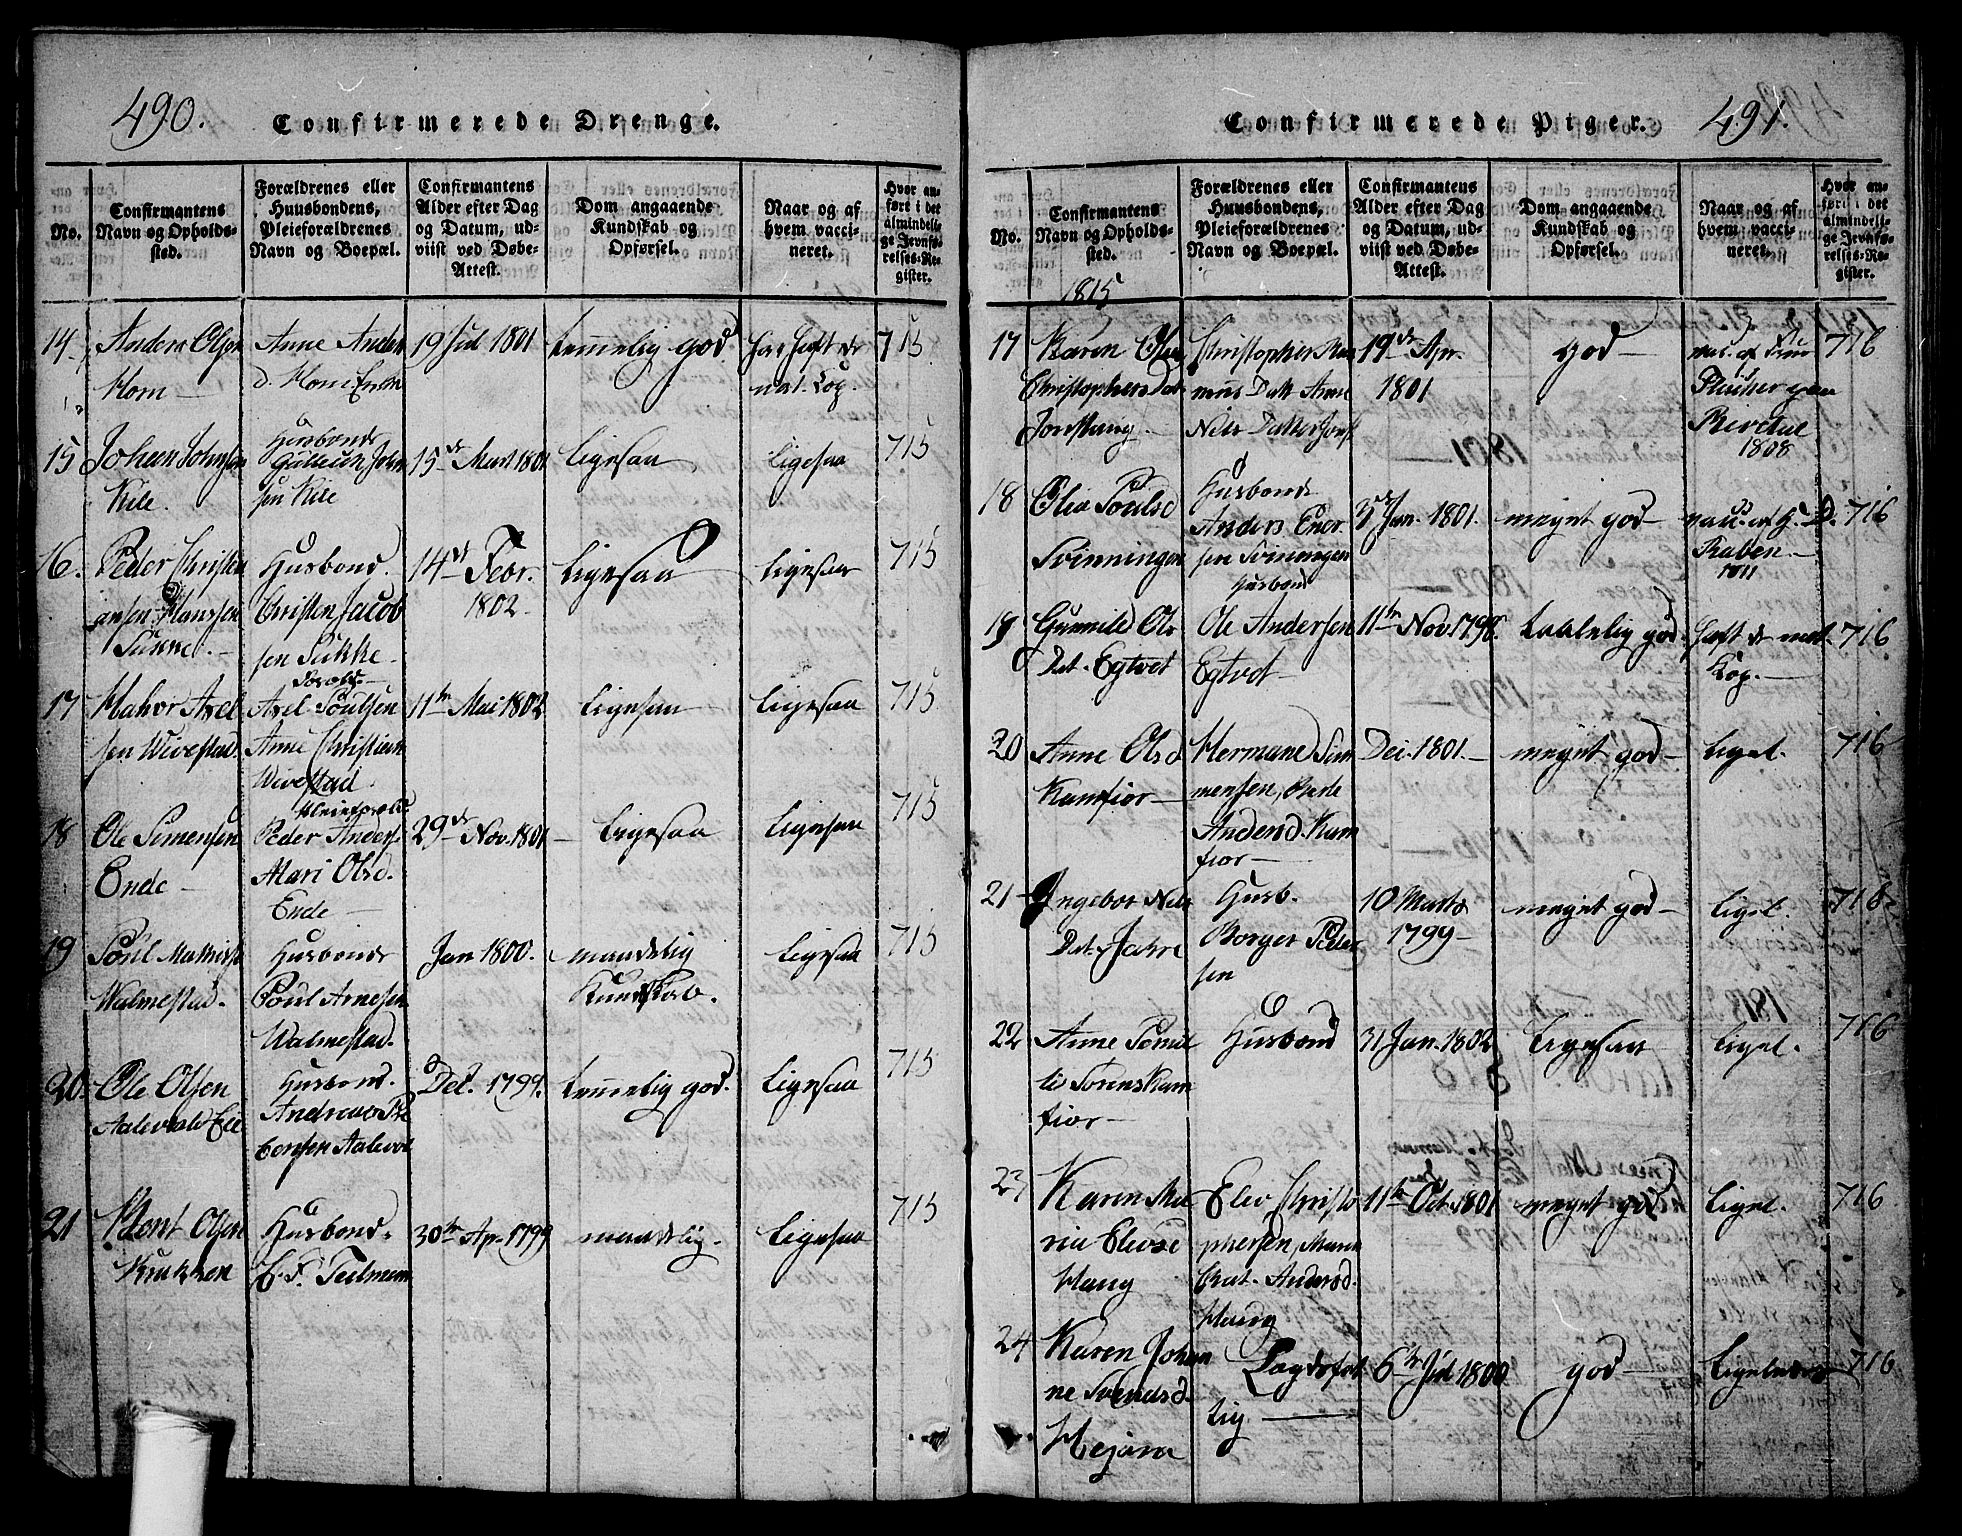 490.
Confirmerede Drenge.
No.
Confirmantens
Navn og Opholds-
sted.
Forældrenes eller
Huusbondens,
Pleieforældrenes
Navn og Boepæl.
Confirmantens
Alder efter Dag
og Datum, ud-
viist ved Døbe-
Attest.
Dom angaaende
Kundskab og
Opførsel.
Naar og af
hvem vacci-
neret.
Hvor an-
ført i det
almindeli-
ge Jevnfø-
relses-Re-
gister.
14
Anders Olsen
Horn
Anne Anders
d. Horn Enke
19 Jul 1801
temelig god
har haft de
nat. Kop.
715
15
Johan Johnsen
Kile.
Husbonde
John
sen Kile
15de Mart 1801
Ligesaa
Ligesaa
715
16.
Peder Christen
ansen Hanssen
Husbond.
Christen Jacob
sen
14de Febr.
1802
Ligesaa
Ligesaa
715
17
Halvor Axel
sen Wivestad.
Axel Poulsen
Anne Christians
Wivestad
11te Mai 1802
Ligesaa
Ligesaa
715
18
Ole Simensen
Ende
Pleieforæld.
Peder Anders.
Mari Olsd.
Ende
29de Nov. 1801
Ligesaa
Ligesaa
715
19
Poul
Walmestad.
Husbonde
Poul Arnesen
Walmestad.
Jan 1800.
maadelig
Kundskab.
Ligesaa
715
20.
Ole Olsen
Aalevald Eie
Husbond.
Andreas Pe
dersen Aalevol
Dec. 1799.
temelig god.
Ligesaa
715
21
Bent Olsen
Krukken
Husbond.
C. F. Teilman
30te Apr. 1799
maadelig.
Ligesaa
715
Confirmerede Piger.
491.
No.
Confirmantens
Navn og Opholds-
sted.
Forældrenes eller
Huusbondens,
Pleieforældrenes
Navn og Boepæl.
Confirmantens
Alder efter Dag
og Datum, ud-
viist ved Døbe-
Attest.
Dom angaaende
Kundskab og
Opførsel.
Naar og af
hvem vacci-
neret.
Hvor an-
ført i det
almindeli-
ge Jevnfø-
relses-Re-
gister.
1815
17
Karen
Christophers Dat.
Christopher
Anne
Niels Datter
19de Apr.
1801
god
vac. af
1808
716
18
Olia Poulsd
Svinningen
Husbonde
Anders Ener
sen Svinningen
3de Jan. 1801.
meget god
vacc. af H. D.
Raben
1811
716
19
Gunnild Ols
Dat. Egtvet
Husbond
Ole Andersen
Egtvet
11te Nov. 1798.
taalelig god.
haft de nat.
Kop.
716
20
Anne Olsd
Kamfior
Hermane Sim
mensen,
Andersd. Kam
fior
Dec. 1801.
meget god
Ligel.
716
21
Ingebor Niels
Dat. Jahre
Husb.
Borger Peder
sen
10 Marts
1799
meget god
Ligel.
716
22
Anne
Sørens Kam
fior
Husbond
31 Jan. 1802
Ligesaa
Ligel.
716
23
Karen Ma
ria Elevsd
Haug
Elev Christo
phersen, Maren
Cat. Andersd.
Haug
11te Oct. 1801
meget god
Ligel.
716
24
Karen Johan
ne Svendsd.
Lagdsfat
tig
6te Jul 1800
god
716